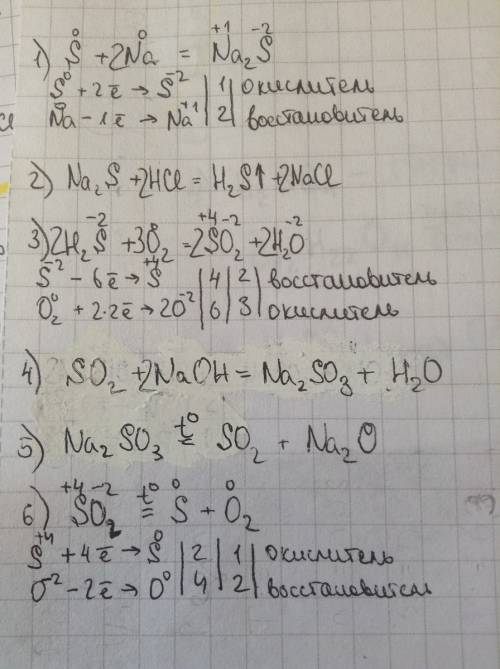 1) S⁰ + 2Na⁰ = Na₂⁺¹S⁻²
S⁰ + 2ē → S⁻² | 1 | окислитель
Na⁰ - 1ē → Na⁺¹ | 2 | восстановитель
2) Na₂S + 2HCl = H₂S↑ + 2NaCl
3) 2H₂S⁻² + 3O₂⁰ = 2S⁺⁴O₂⁻² + 2H₂O⁻²
S⁻² - 6ē → S⁺⁴ | 4 | 2 | восстановитель
O₂⁰ + 2·2ē → 2O⁻² | 6 | 3 | окислитель
4) SO₂ + 2NaOH = Na₂SO₃ + H₂O
5) Na₂SO₃ =t⁰ SO₂ + Na₂O
6) S⁺⁴O₂⁻² =t⁰ S⁰ + O₂⁰
S⁺⁴ + 4ē → S⁰ | 2 | 1 | окислитель
O⁻² - 2ē → O⁰ | 4 | 2 | восстановитель